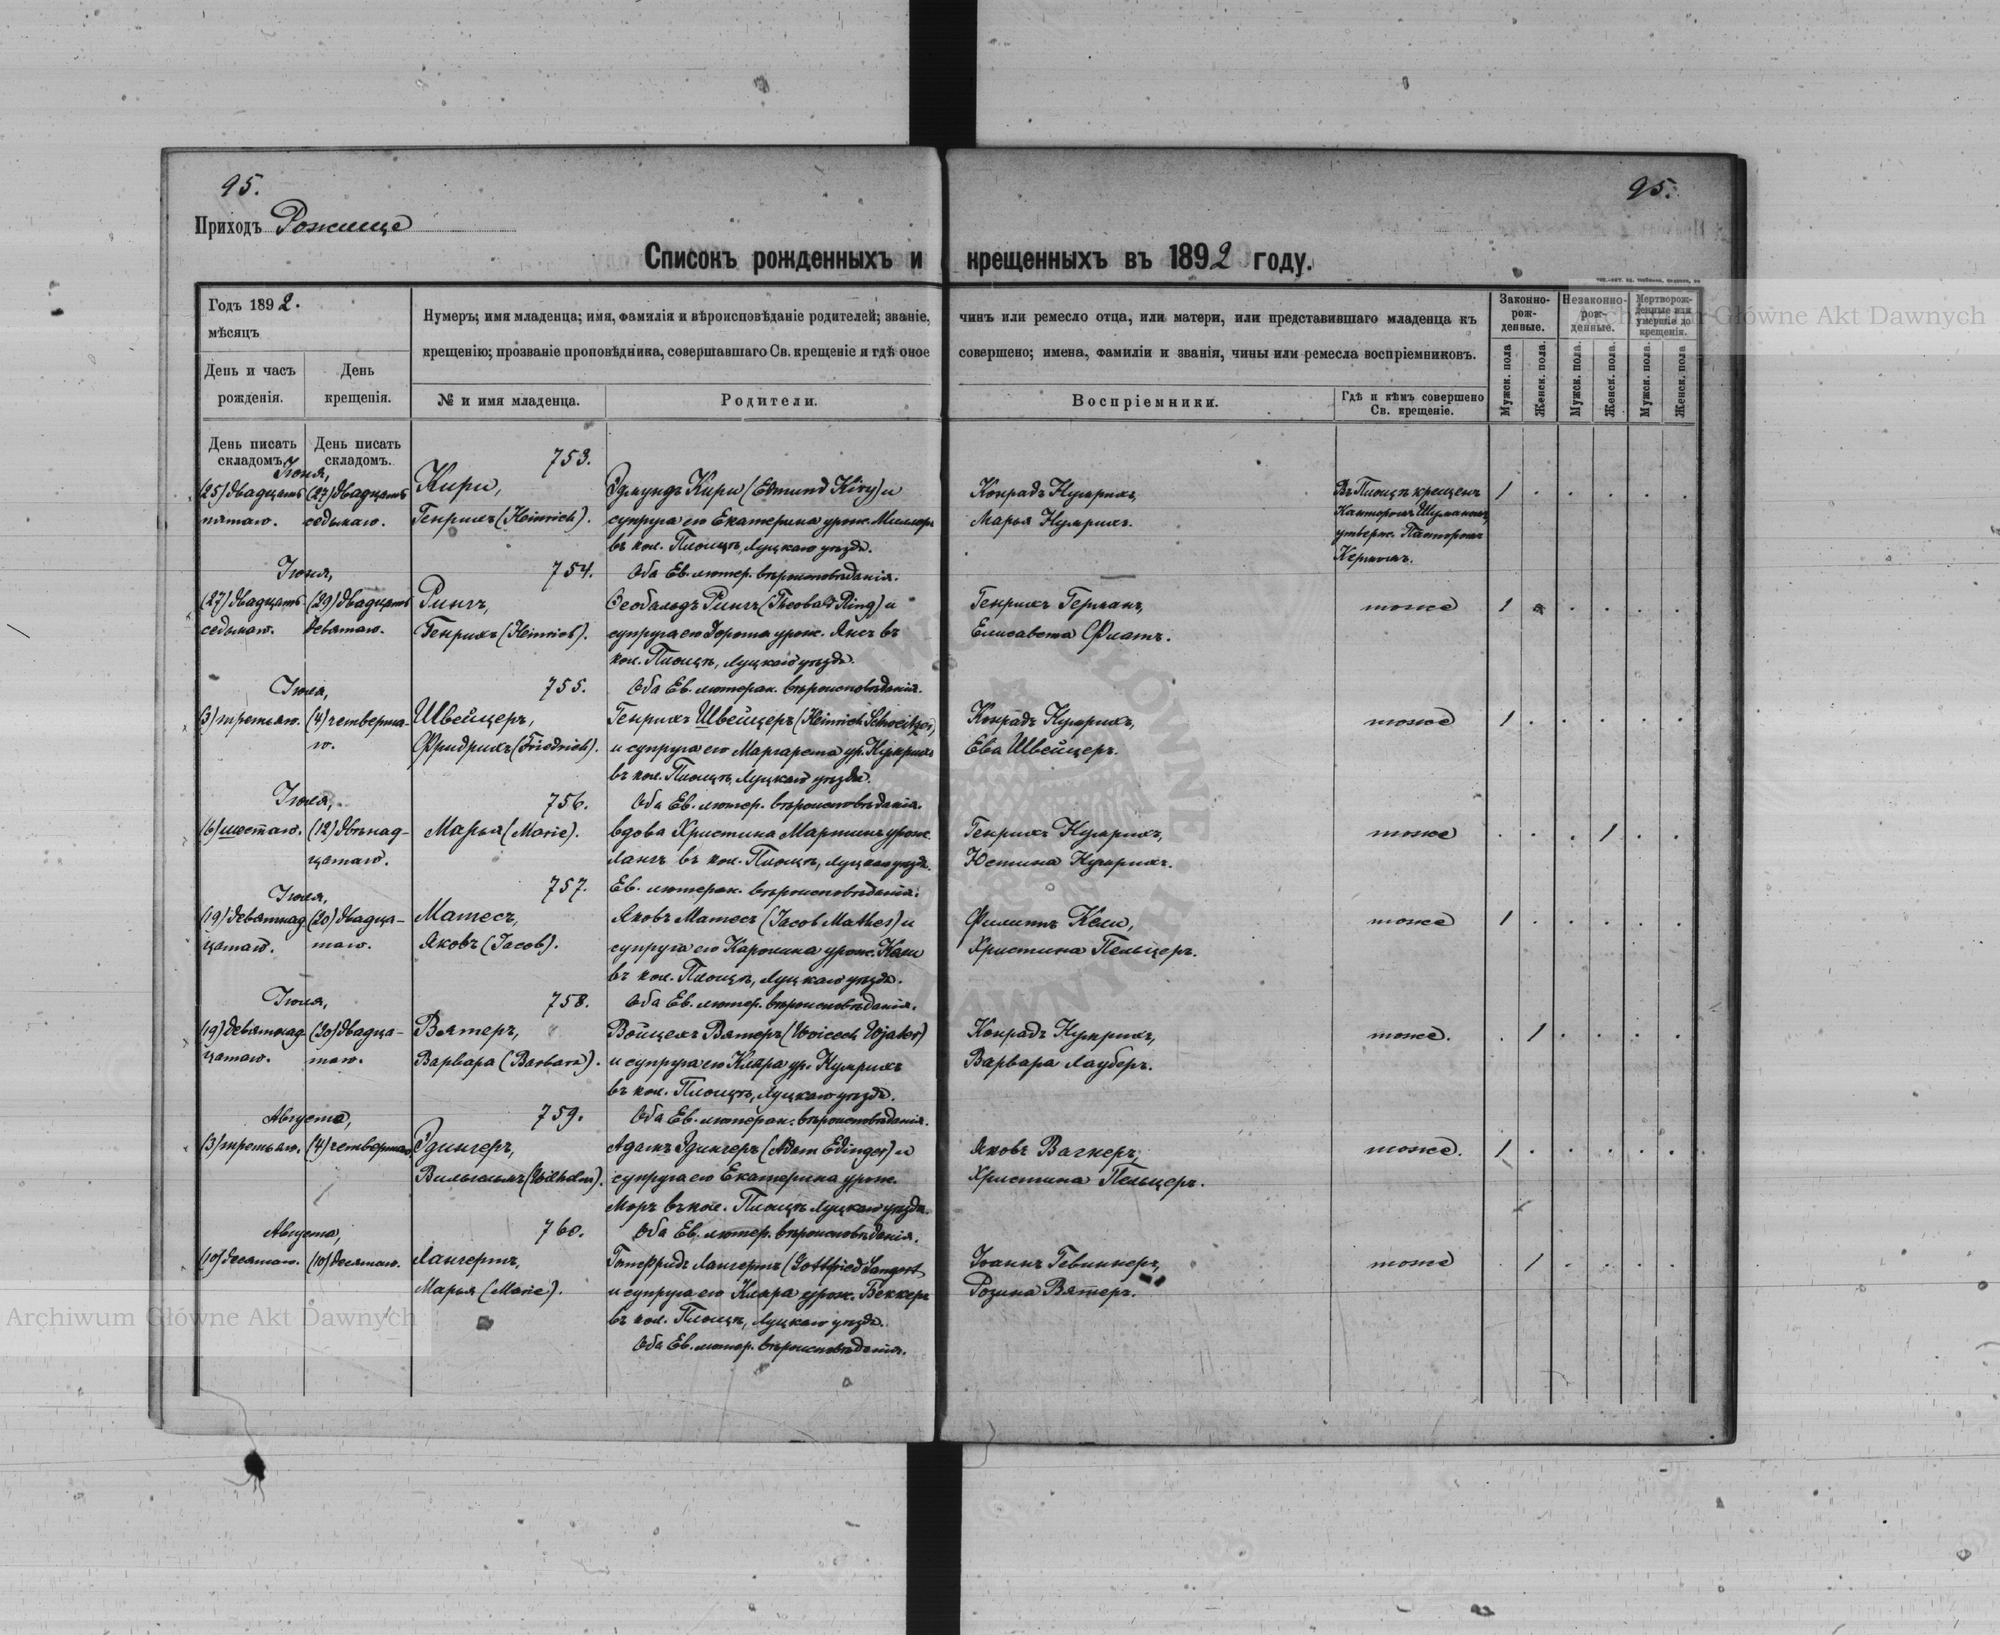 95.
95.
Приходъ Рожище
Списокъ рожденныхъ и крещенныхъ въ 1892 году.
Годъ 1892.
мѣсяцъ
День и часъ рожденія.
День крещенія.
Нумеръ; имя младенца; имя, фамилія и вѣроисповѣданіе родителей; званіе, чинъ или ремесло отца, или матери, или представившаго младенца къ
крещенію; прозваніе проповѣдника, совершавшаго Св. крещеніе и гдѣ оное совершено; имена, фамиліи и званія, чины или ремесла воспріемниковъ.
№ и имя младенца.
Родители.
Воспріемники.
Гдѣ и кѣмъ совершено
Св. крещеніе.
Законно-
рож-
денные.
Незаконно-
рож-
денные.
Мертворож-
денные или
умершіе до
крещенія.
Мужск. пола
Женск. пола.
Мужск. пола.
Женск. пола.
Мужск. пола.
Женск. пола
День писать
складомъ.
День писать
складомъ.
Іюня,
753.
(25) двадцать
пятаго.
(27) двадцать
седьмаго.
Кири,
Генрихъ (Heinrich).
Эдмундъ Кири (Edmund Kiry) и
супруга его Екатерина урож. Миллеръ
въ кол. Площъ, Луцкаго уѣзда.
Оба Ев. лютер. вѣроисповѣданія.
Конрадъ Кумрихъ,
Марья Кумрихъ.
Въ Площѣ крещенъ
Канторомъ Шуманомъ,
утвержд. Пасторомъ
Кернъмъ.
1
Іюня,
754.
(27) двадцать
седьмаго.
(29) двадцать
девятаго.
Рингъ,
Генрихъ (Heinrich).
Теобальдъ Рингъ (Theobald Ring) и
супруга его Дорота урож. Янсъ въ
кол. Площъ, Луцкаго уѣзда.
Оба Ев. лютеран. вѣроисповѣданія.
Генрихъ Германъ,
Елисавета Флатъ.
тоже
1
Іюля,
755.
(3) третьяго.
(4) четверта-
го.
Швейцеръ,
Фридрихъ (Friedrich).
Генрихъ Швейцеръ (Heinrich Schweitzer)
и супруга его Маргарета ур. Кумрихъ
въ кол. Площъ, Луцкаго уѣзда.
Оба Ев. лютер. вѣроисповѣданія.
Конрадъ Кумрихъ,
Ева Швейцеръ.
тоже
1
Іюля,
756.
(6) шестаго.
(12) двѣнад-
цатаго.
Марья (Marie).
вдова Христина Мартинъ урож.
Лангъ въ кол. Площъ, Луцкаго уѣзда.
Ев. лютеран. вѣроисповѣданія.
Генрихъ Кумрихъ,
Юстина Кумрихъ.
тоже
1
Іюля,
757.
(19) девятнад
цатаго.
(20) двадца-
таго.
Матесъ,
Яковъ (Jacob).
Яковъ Матесъ (Jacob Mathes) и
супруга его Каролина урож. Кели
въ кол. Площъ, Луцкаго уѣзда.
Оба Ев. лютер. вѣроисповѣданія.
Филиппъ Кели,
Христина Пельцеръ.
тоже
1
Іюля,
758.
(19) девятнад
цатаго.
(20) двадца-
таго.
Вятеръ,
Варвара (Barbara).
Войцехъ Вятеръ (Woicech Wjater)
и супруга его Клара ур. Кумрихъ
въ кол. Площъ, Луцкаго уѣзда.
Оба Ев. лютеран. вѣроисповѣданія.
Конрадъ Кумрихъ,
Варвара Лауберъ.
тоже.
1
Августа,
759.
(3) третьяго.
(4) четвертаго
Эдингеръ,
Вильгельмъ (Wilhelm).
Адамъ Эдингеръ (Adam Edinger) и
супруга его Екатерина урож.
Моръ въ кол. Площъ Луцкаго уѣзда.
Оба Ев. лютер. вѣроисповѣданія.
Яковъ Вагнеръ,
Христина Пельцеръ.
тоже.
1
Августа,
760.
(10) десятаго.
(10) десятаго.
Лангертъ,
Марья (Marie).
Готфридъ Лангертъ (Gottfried Langert
и супруга его Клара урож. Беккеръ
въ кол. Площъ, Луцкаго уѣзда.
Оба Ев. лютер. вѣроисповѣданія.
Іоаннъ Гевиннеръ,
Розина Вятеръ.
тоже
1
Archiwum Główne Akt Dawnych
Archiwum Główne Akt Dawnych